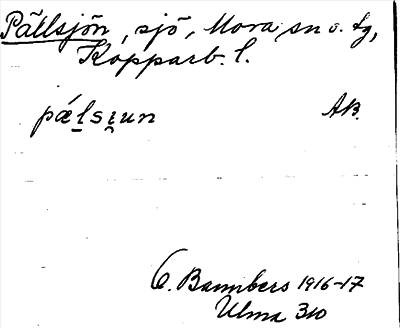 Pällsjön, sjö, Mora sn o. tg,
Kopparb. l.
pǽḻsi̯un AB.
O. Bannbers 1916-17
Ulma 310